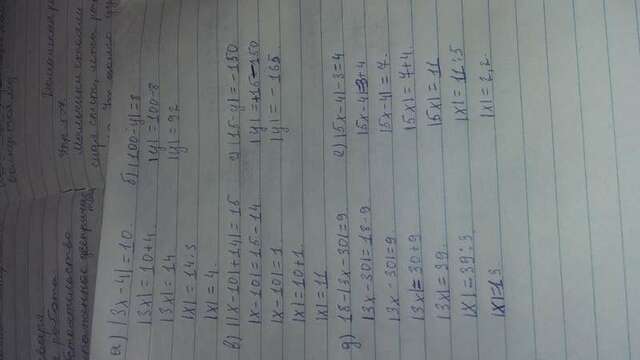 работа
а) |3x-4|=10.
|3x|=10+4
|3x|=14
|x|=14:3
|x|=4.
б) |100-y|=8
|y|=100-8
|y|=92
в) ||x-10|+14|=15
|x-10|=15-14
|x-10|=1.
|x|=10+1.
|x|=11
г) |15-y|=-150
|y|=+15-150
|y|=-165
д) 18-|3x-30|=9.
|3x-30|=18-9.
|3x-30|=9.
|3x|=30+9
|3x|=39.
|x|=39:3.
|x|=13.
е) |5x-4|-3=4
|5x-4|=3+4
|5x-4|=7.
|5x|=7+4.
|5x|=11
|x|=11:5
|x|=2,2.